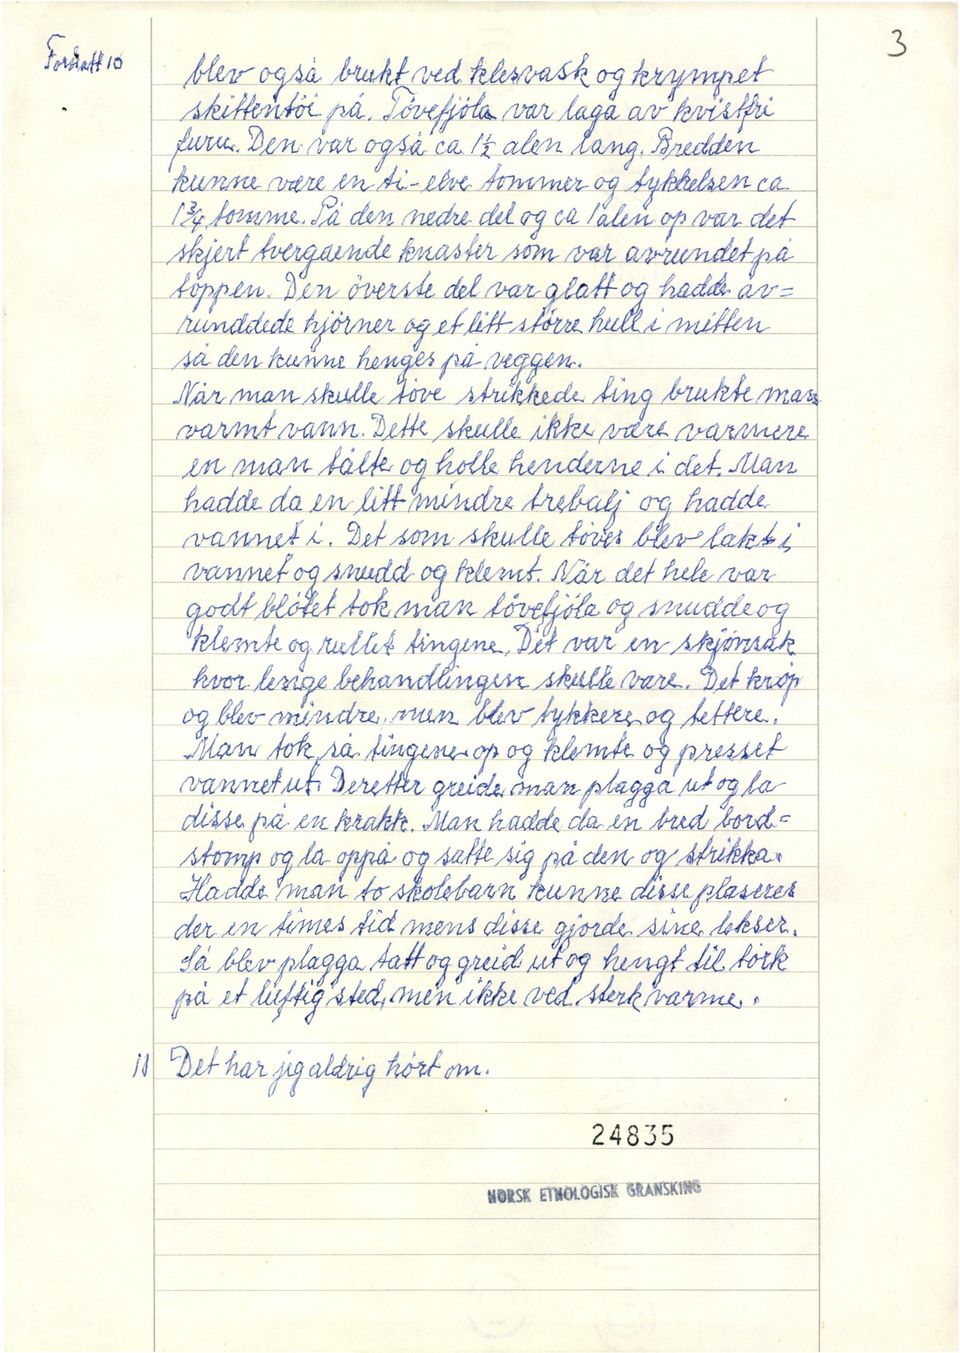 3
Forts​att 10
blev også brukt ved klesvask og krympet
skittentöi på. Tövefjöla var laga av kvistfri
furu. Den var også ca 1½ alen lang. Bredden
kunne være en ti-elve tommer og tykkelsen ca
1¾ tomme. På den nedre del og ca 1 alen op var det
skjert tvergaende knaster som var avrundet på
toppen. Den överste del var glatt og hadde av=
runddede hjörner og et litt större hull i mitten
så den kunne henges på veggen.
Når man skulle töve strikkede ting brukte man
varmt vann. Dette skulle ikke være varmere
en man tålte og holle henderne i det. Man
hadde da en litt mindre trebalj og hadde
vannet i. Det som skulle töves blev lakt i
vannet og snudd og klemt. Når det hele var
godt blötet tok man tövefjöla og snudde og
klemte og rullet tingene. Det var en skjönsak
hvor lenge behandlingen skulle vare. Det kröp
og blev mindre, men blev tykkere og tettere.
Man tok så tingene op og klemte og presset
vannet ut. Deretter greide man plagga ut og la
disse på en krakk. Man hadde da en bred bord=
stomp og la oppå og satte sig på den og strikka.
Hadde man to skolebarn kunne disse plaseres
der en times tid mens disse gjorde sine lekser.
Så blev plagga tatt og greid ut og hengt til törk
på et luftig sted, men ikke ved sterk varme.
11 Det har jeg aldrig hört om.
24835
NORSK ETNOLOGISK GRANSKING